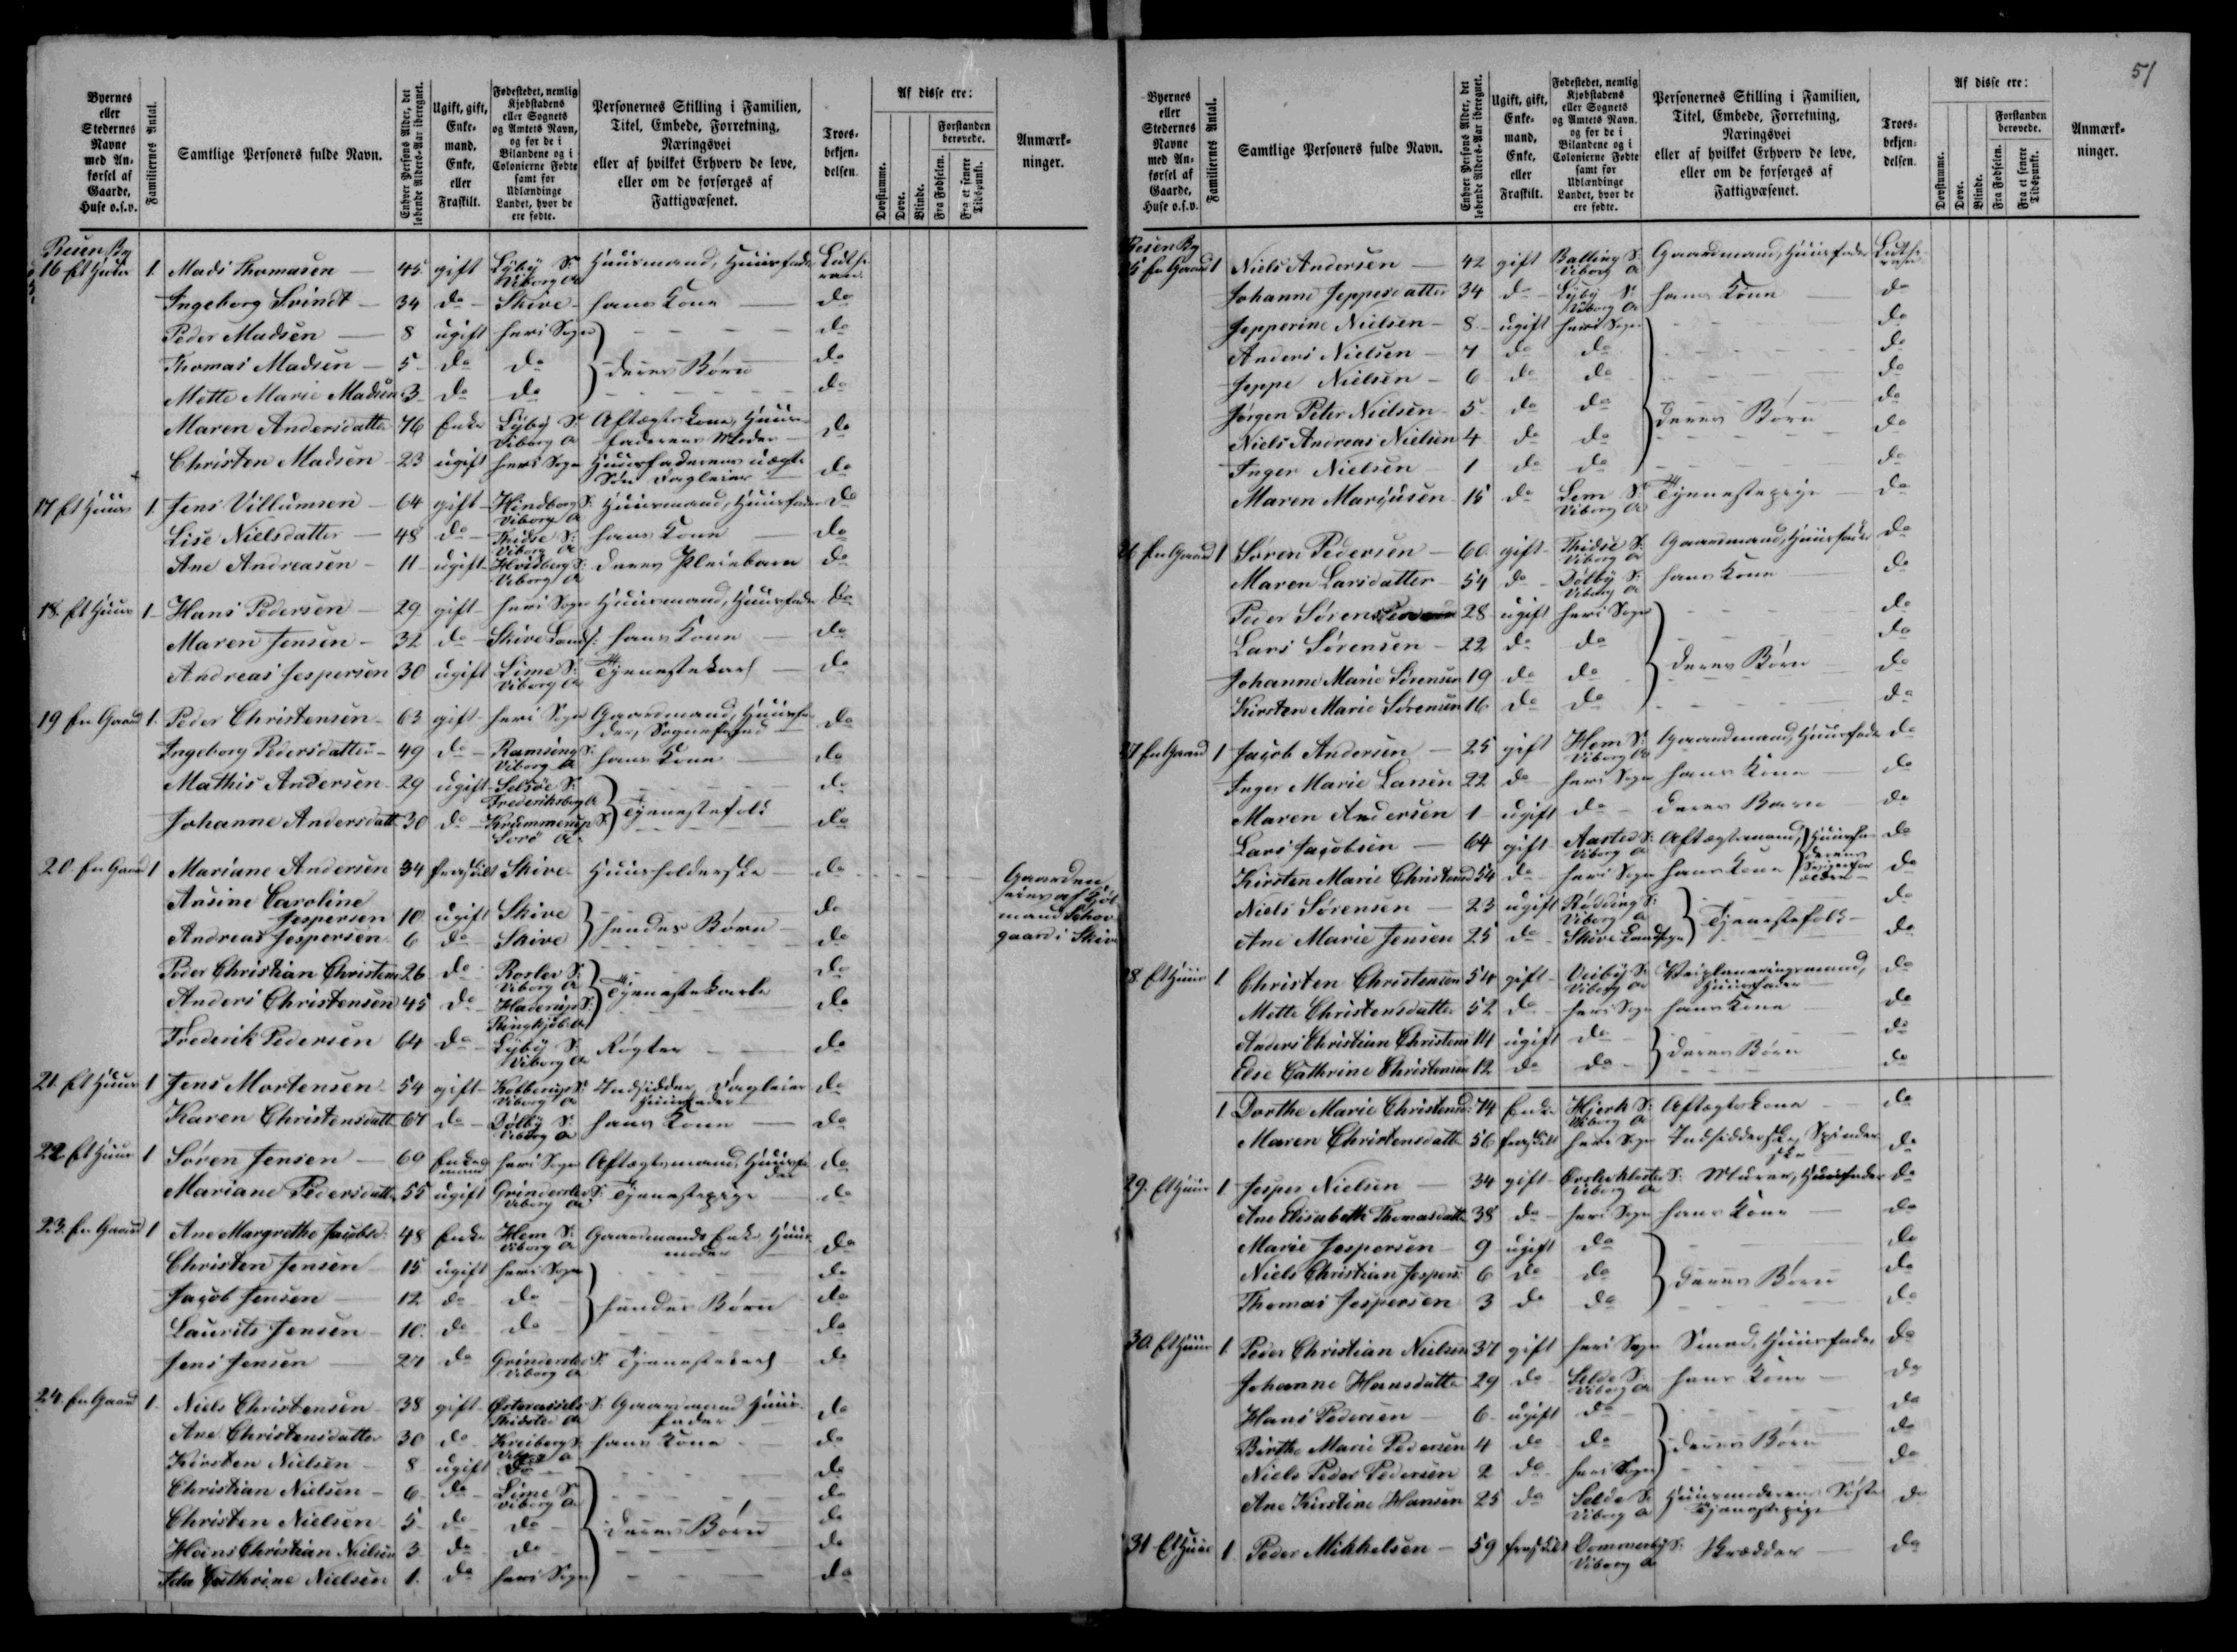 Byernes eller Stedernes Navne med Anførsel af Gaarde, Huse o.s.v.
Familiernes Antal.
Samtlige Personers fulde Navn.
Enhver Persons Alder, det løbende Alders-Aar iberegnet.
Ugift, gift, Enkemand, Enke, eller Fraskilt.
Fødestedet, nemlig Kjøbstadens eller Sognets og Amtets Navn, og for de i Bilandene og i Colonierne Fødte samt for Udlændinge Landet, hvor de ere fødte.
Personernes Stilling i Familien, Titel, Embede, Forretning, Næringsvei eller af hvilket Erhverv de leve, eller om de forsørges af Fattigvæsenet.
Troesbekjendelsen.
Af disse ere:
Døvstumme.
Døve.
Blinde.
Forstanden berøvede.
Fra Fødselen.
Fra et senere Tidspunkt.
Anmærkninger.
Resen By
16 Et Huus 1. Mads Thomasen 45 gift Lyby S: Viborg A Huusmand, Huusfader Luthe­ran
Ingeborg Svindt 34 do Skive hans Kone do
Peder Madsen 8 ugift heri Sogn do
Thomas Madsen 5 do do deres Børn do
Mette Marie Madsen 3 do do do
Maren Andersdatter 76 Enke Lyby S: Viborg A Aftægtskone, Huusfaderens Moder do
Christen Madsen 23 ugift heri Sogn Huusfaderens uægte Søn Dagleier do
17 Et Huus 1. Jens Villumsen 64 gift Hindborg S: Viborg A Huusmand, Huusfader do
Lise Nielsdatter 48 do Thidse S: Viborg A hans Kone do
Ane Andreasen 11 ugift Hvidberg S: Viborg A deres Pleiebarn do
18. Et Huus 1 Hans Pedersen 29 gift heri Sogn Huusmand, Huusfader do
Maren Jensen 32 do Skive Lands: hans Kone do
Andreas Jespersen 30 ugift Lime S: Viborg A Tjenestekarl do
19 En Gaard 1. Peder Christensen 63 gift heri Sogn Gaardmand, Huusfader, Sognefoged do
Ingeborg Pedersdatter 49 do Ramsing S: Viborg A hans Kone do
Mathis Andersen 29 ugift Selsöe S: Frederiksborg A do
Johanne Andersdatt. 30 do Krummerup S: Sorø A Tjenestefolk do
20. En Gaard 1 Mariane Andersen 34 fraskilt Skive Huusholderske do Gaarden eies af Kjøbmand Schougaard i Skive
Ansine Caroline Jespersen 10 ugift Skive do
Andreas Jespersen 6 do Skive hendes Børn do
Peder Christian Christens: 26 do Roslev S: Viborg A do
Anders Christensen 45 do Haderup S: Ringkjøb: A Tjenestekarle do
Frederik Pedersen 64 do Lyby S: Viborg A Røgter do
21. Et Huus 1 Jens Mortensen 54 gift Kobberup S: Viborg A Indsidder, Dagleier Huusfader do
Karen Christensdatt 67 do Dølby S: Viborg A hans Kone do
22 Et Huus 1 Søren Jensen 69 Enkemand heri Sogn Aftægtsmand, Huusfader do
Mariane Pedersdatt. 55 ugift Grinderslev S: Viborg A Tjenestepige do
23. En Gaard 1 Ane Margrethe Jacobsd: 48 Enke Hem S: Viborg A Gaardmands Enke, Huusmoder do
Christen Jensen 15 ugift heri Sogn do
Jacob Jensen 12 do do hendes Børn do
Laurits Jensen 10. do do do
Jens Jensen 27 do Grinderslev S: Viborg A Tjenestekarl do
24. En Gaard 1. Niels Christensen 38 gift Østerassels S: Thisted A Gaardmand Huusfader do
Ane Christensdatter 30 do Kreiberg S: Viborg A hans Kone do
Kirsten Nielsen 8 ugift do do
Christian Nielsen 6 do Lime S: Viborg A do
Christen Nielsen 5 do do deres Børn do
Hans Christian Nielsen 3 do do do
Cathrine Nielsen 1. do heri Sogn do
51
Byernes eller Stedernes Navne med Anførsel af Gaarde, Huse o.s.v.
Familiernes Antal.
Samtlige Personers fulde Navn.
Enhver Persons Alder, det løbende Alders-Aar iberegnet.
Ugift, gift, Enkemand, Enke, eller Fraskilt.
Fødestedet, nemlig Kjøbstadens eller Sognets og Amtets Navn, og for de i Bilandene og i Colonierne Fødte samt for Udlændinge Landet, hvor de ere fødte.
Personernes Stilling i Familien, Titel, Embede, Forretning, Næringsvei eller af hvilket Erhverv de leve, eller om de forsørges af Fattigvæsenet.
Troesbekjendelsen.
Af disse ere:
Døvstumme.
Døve.
Blinde.
Forstanden berøvede.
Fra Fødselen.
Fra et senere Tidspunkt.
Anmærkninger.
Resen By
25 En Gaard 1 Niels Andersen 42 gift Balling S: Viborg A Gaardmand, Huusfader Lutheran
Johanne Jeppesdatter 34 do Lyby S: Viborg A hans Kone do
Jepperine Nielsen 8 ugift heri Sogn do
Anders Nielsen 7 do do do
Jeppe Nielsen 6 do do do
Jørgen Peter Nielsen 5 do do deres Børn do
Niels Andreas Nielsen 4 do do do
Inger Nielsen 1 do do do
Maren Marqusen 15 do Lem S: Viborg A Tjenestepige do
26 En Gaard 1 Søren Pedersen 60 gift Thidse S: Viborg A Gaardmand, Huusfader do
Maren Larsdatter 54 do Dølby S: Viborg A hans Kone do
Peder Sørensen 28 ugift heri Sogn do
Lars Sørensen 22 do do do
Johanne Marie Sørensen 19 do do deres Børn do
Kirsten Marie Sørensen 16 do do do
27 En Gaard 1 Jacob Andersen 25 gift Hem S: Viborg A Gaardmand, Huusfader do
Inger Marie Larsen 22 do heri Sogn hans Kone do
Maren Andersen 1 ugift do deres Barn do
Lars Jacobsen 64 gift Aasted S: Viborg A Aftægtsmand, Huusfaderens Svigerforældre do
Kirsten Marie Christensd 54 do heri Sogn hans Kone do
Niels Sørensen 23 ugift Rødding S: Viborg A do
Ane Marie Jensen 25 do Skive Landsogn Tjenestefolk do
28. Et Huus 1 Christen Christensen 54 gift Veiby S: Viborg A Veiplaneringsmand, Huusfader do
Mette Christensdatter 52 do heri Sogn hans Kone do
Anders Christian Christens: 14 ugift do do
Else Cathrine Christensen 12 do do deres Børn do
1 Dorthe Marie Christensd: 74 Enke Hjerk S: Viborg A Aftægtskone do
Maren Christensdatt 56 fraskilt heri Sogn Indsidderske, Spinderske do
29. Et Huus 1 Jesper Nielsen 34 gift Ørslevkloster S: Viborg A Murer, Huusfader do
Ane Elisabeth Thomasdatt 38 do heri Sogn hans Kone do
Marie Jespersen 9 ugift do do
Niels Christian Jespers: 6 do do deres Børn do
Thomas Jespersen 3 do do do
30. Et Huus 1 Peder Christian Nielsen 37 gift heri Sogn Smed, Huusfader do
Johanne Hansdatter 29 do Selde S: Viborg A hans Kone do
Hans Pedersen 6 ugift do do
Birthe Marie Pedersen 4 do do deres Børn do
Niels Peder Pedersen 2 do heri Sogn do
Ane Kirstine Hansen 25 do Selde S: Viborg A Huusmoderens Søster Tjenestepige do
31 Et Huus 1 Peder Mikkelsen 59 fraskilt Dommerby S: Viborg A Skrædder do